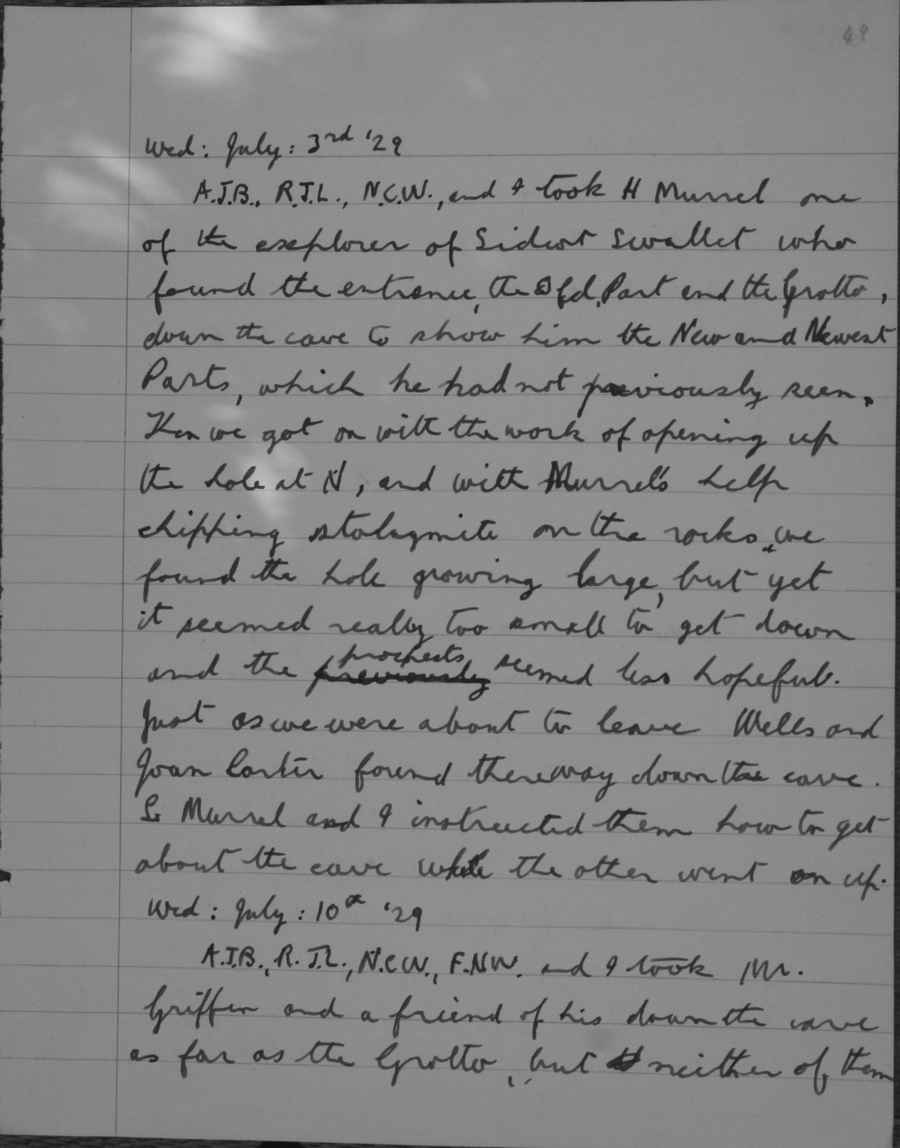 49
Wed: July: 3rd '29
A.J.B., R.J.L., N.C.W., and I took H Murrel one
of the explorer of Sidcot Swallet who
found the entrance, the Old, Part and the Grotto,
down the cave to show him the New and Newest
Parts, which he had not previously seen.
Then we got on with the work of opening up
the hole at N, and with Murrel's help
chipping stalagmite on the rocks, we
found the hole growing large, but yet
it seemed really too small to get down
and the previously prospects seemed less hopeful.
Just as we were about to leave Wells and
Joan Carter found thereway down the cave.
So Murrel and I instructed them how to get
about the cave while the other went on up.
Wed: July: 10th '29
A.J.B., R.J.L., N.C.W., F.N.W. and I took Mr.
Griffen and a friend of his down the cave
as far as the Grotto, but neither of them